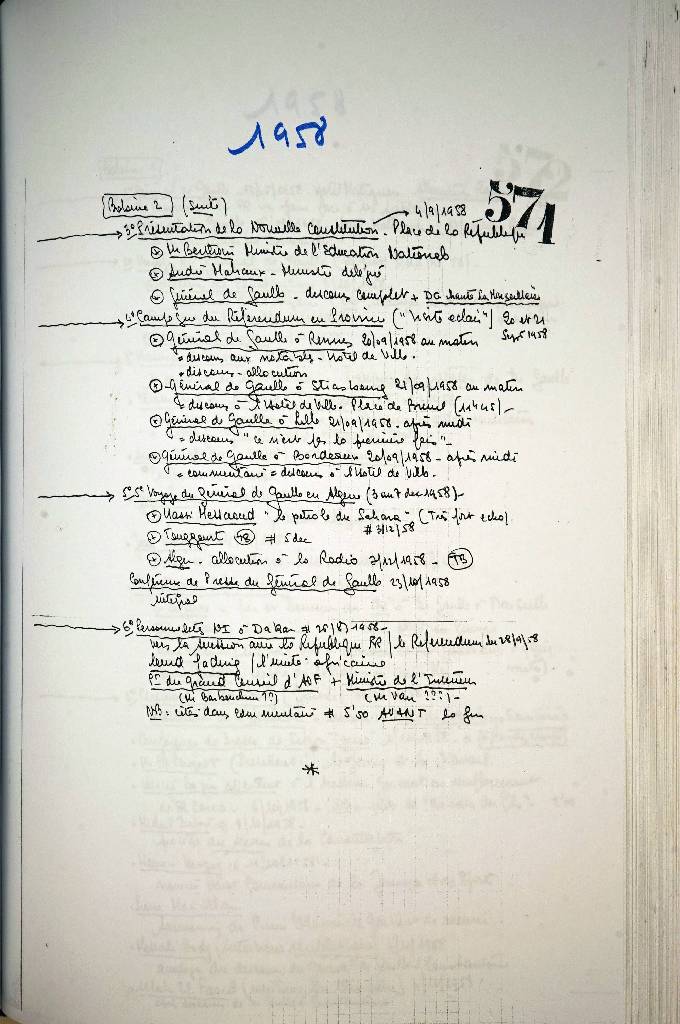 1958
571
Bobine 2 (suite)
4/9/1958
3° Présentation de la Nouvelle Constitution - Place de la République
M Berthoin Ministre de l'Education National
André Malraux - Ministre délégué
Général de Gaulle - discours complet + DG chante La Marseillaise
4° Campagne du Référendum en Province ("Visite éclair") 20 et 21
Sept 1958
Général de Gaulle à Rennes 20/09/1958 au matin
= discours aux notables - Hotel de Ville.
= discours - allocution
Général de Gaulle à Strasbourg 21/09/1958 au matin
= discours à l'Hotel de Ville. Place de (11445) -
Général de Gaulle à Lille 21/09/1958 - après midi
= discours "ce n'est pas la première fois" -
Général de Gaulle à Bordeaux 20/09/1958 - après midi
= commentaire = discours à l'Hotel de Ville.
5° 5e Voyage du Général de Gaulle en Algérie (3 au 7 dec 1958) -
Hassi Messaoud "le pétrole du Sahara" (Très fort echo)
# 7/12/58
Touggourt TB # 5 dec
Alger - allocution à la Radio 3/12/1958 - TB
Conférence de Presse du Général de Gaulle 23/10/1958
intégral
6° Personnalités NI à Dakar # 26/8/1958 -
vers la avec la République / le Referendum du 28/9/58
/ l'unité africaine
PI du grand Conseil d'AOF + Ministre de l'Intérieur
(M ??) (M Van ???) -
NB : cités dans commentaire # 5'50 AVANT la fin
*